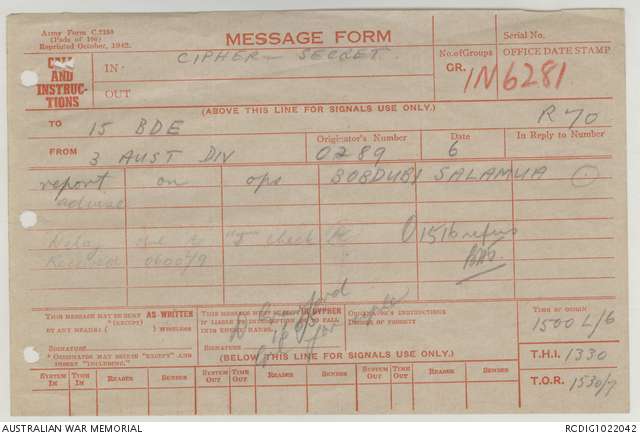 Army Form C.2136
(Pads of 100)
Reprinted October, 1942.
MESSAGE FORM
Serial No.
CALL AND INSTRUC-TIONS
IN
CIPHER - SECRET
OUT
No. of Groups
GR.
OFFICE DATE STAMP
IN6281
(ABOVE THIS LINE FOR SIGNALS USE ONLY.)
TO 15 BDE
R 70
FROM 3 AUST DIV
Originator's Number
0289
Date
6
In Reply to Number
report on ops BOBDUBI SALAMUA
Delay due to check
Received 060079
O 1516 refers
THIS MESSAGE MAY BE SENT AS WRITTEN
(EXCEPT)
BY ANY MEANS ( ) WIRELESS
SIGNATURE
* ORIGINATOR MAY DELETE "EXCEPT" AND INSERT "INCLUDING."
THIS MESSAGE MUST BE SENT IN CYPHER
IF LIABLE TO INTERCEPTION OR TO FALL INTO ENEMY HANDS.
SIGNATURE
ORIGINATOR'S INSTRUCTIONS
DEGREE OF PRIORITY
TIME OF ORIGIN
1500 L/6
(BELOW THIS LINE FOR SIGNALS USE ONLY.)
T.H.I. 1330
SYSTEM IN TIME IN READER SENDER SYSTEM OUT TIME OUT READER SENDER SYSTEM OUT TIME OUT READER SENDER
T.O.R. 1530/7
AUSTRALIAN WAR MEMORIAL
RCDIG1022042